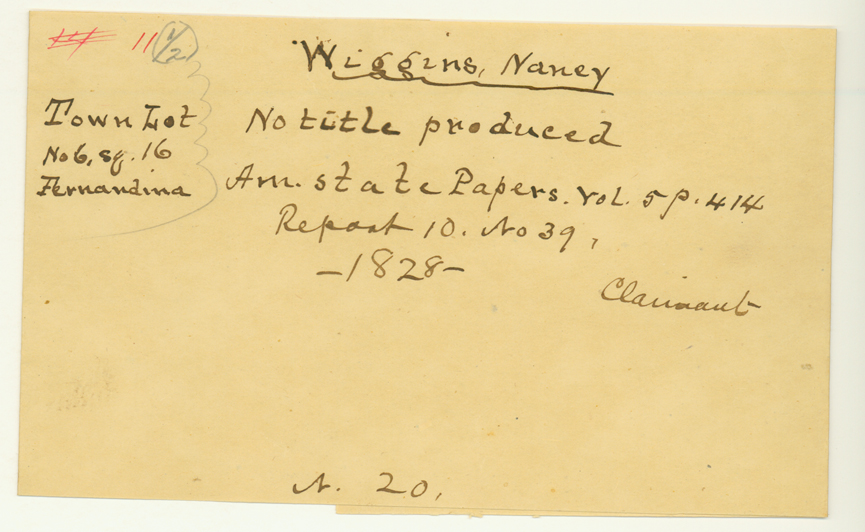 11 1/2
Wiggins, Nancy
Town Lot
No 6, sq. 16
Fernandina
No title produced
Am. state Papers. Vol. 5 p. 414
Report 10. No 39,
-1828-
Claimant
N. 20.